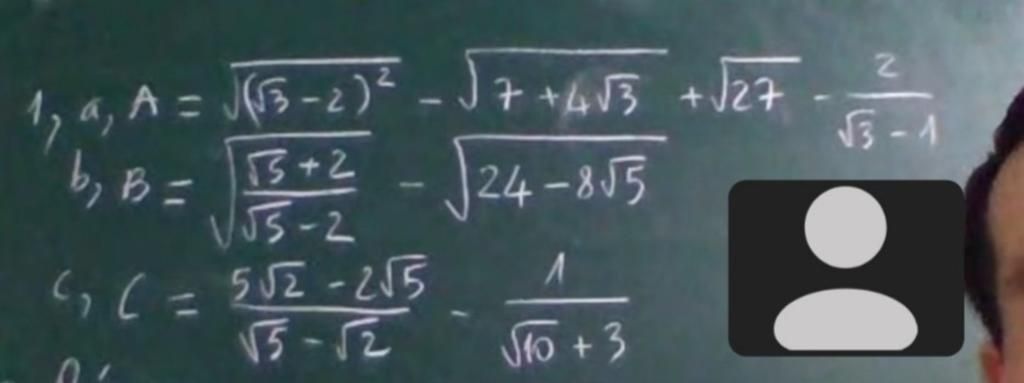 1, a, A = √(√3 - 2)² - √7 + 4√3 + √27 - 2/(√3 - 1)
b, B = √(√5 + 2)/(√5 - 2) - √24 - 8√5
c, C = (5√2 - 2√5)/(√5 - √2) - 1/(√10 + 3)